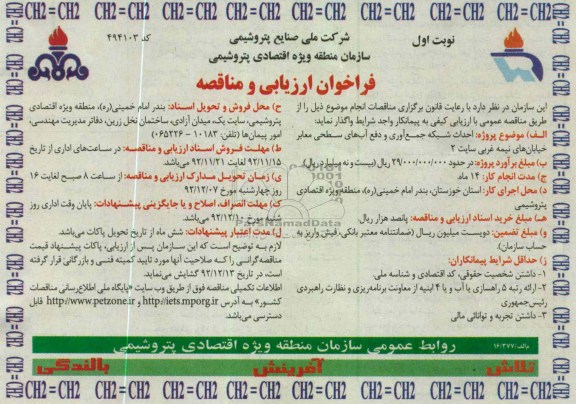 نوبت اول
شرکت ملی صنایع پتروشیمی
سازمان منطقه ویژه اقتصادی پتروشیمی
کد ۴۹۴۱۰۳
فراخوان ارزیابی و مناقصه
این سازمان در نظر دارد با رعایت قانون برگزاری مناقصات انجام موضوع ذیل را از
طریق مناقصه عمومی با ارزیابی کیفی به پیمانکار واجد شرایط واگذار نماید:
الـف) موضوع پروژه: احداث شـبکه جمع‌آوری و دفع آب‌های سـطحی معابر
خیابان‌های نیمه غربی سایت ۲
ب) مبلغ برآورد پروژه: در حدود ۲۹/۰۰۰/۰۰۰/۰۰۰ ریال (بیست و نه میلیارد ریال)
ج) مدت انجام کار: ۱۴ ماه
د) محل اجرای کار: استان خوزستان، بندر امام خمینی(ره)، منطقه ویژه اقتصادی
پتروشیمی
هـ) مبلغ خرید اسناد ارزیابی و مناقصه: پانصد هزار ریال
و) مبلغ تضمین: دویست میلیون ریـال (ضمانتنامه معتبر بانکی، فیش واریز به
حساب سازمان)
ز) حداقل شرایط پیمانکاران:
۱- داشتن شخصیت حقوقی، کد اقتصادی و شناسه ملی.
۲- ارائه رتبه ۵ راهسازی یا آب و یا ۴ ابنیه از معاونت برنامه‌ریزی و نظارت راهبردی
رئیس‌جمهوری
۳- داشتن تجربه و توانائی مالی
ح) محل فروش و تحویل اسـناد: بندر امام خمینی(ره)، منطقه ویژه اقتصادی
پتروشیمی، سایت یک، میدان آزادی، ساختمان نخل زرین، دفاتر مدیریت مهندسی،
امور پیمان‌ها (تلفن: ۱۰۱۸۳ - ۰۶۵۲۲۶)
ط) مهلـت فـروش اسـناد ارزیابی و مناقصـه: در سـاعت‌های اداری از تاریخ
۹۲/۱۱/۱۵ لغایت ۹۲/۱۱/۲۱ می‌باشد.
ی) زمـان تحویـل مـدارک ارزیابـی و مناقصه: از سـاعت ۸ صبح لغایت ۱۶
روز چهارشنبه مورخ ۹۲/۱۲/۰۷
ک) مهلت انصراف، اصلاح و یا جایگزینی پیشـنهادات: پایان وقت اداری روز
مورخ می‌باشد.
ل) مدت اعتبار پیشنهادات: شش ماه از تاریخ تحویل پاکات می‌باشد.
لازم به توضیح است که این سـازمان پس از ارزیابی، پاکات پیشـنهاد قیمت
مناقصه‌گرانی را که صلاحیت آنها مورد تایید کمیته فنـی و بازرگانی قرار گرفته
است، در تاریخ ۹۲/۱۲/۱۳ گشایش می‌نماید.
اطلاعات تکمیلی مناقصه فوق از طریق وب سایت «پایگاه ملی اطلاع‌رسانی مناقصات
کشور» به آدرس http://iets.mporg.ir و http://www.petzone.ir قابل
دسترسی می‌باشد.
روابط عمومی سازمان منطقه ویژه اقتصادی پتروشیمی
م‌الف/۱۶/۳۷۷
تلاش آفرینش بالندگی